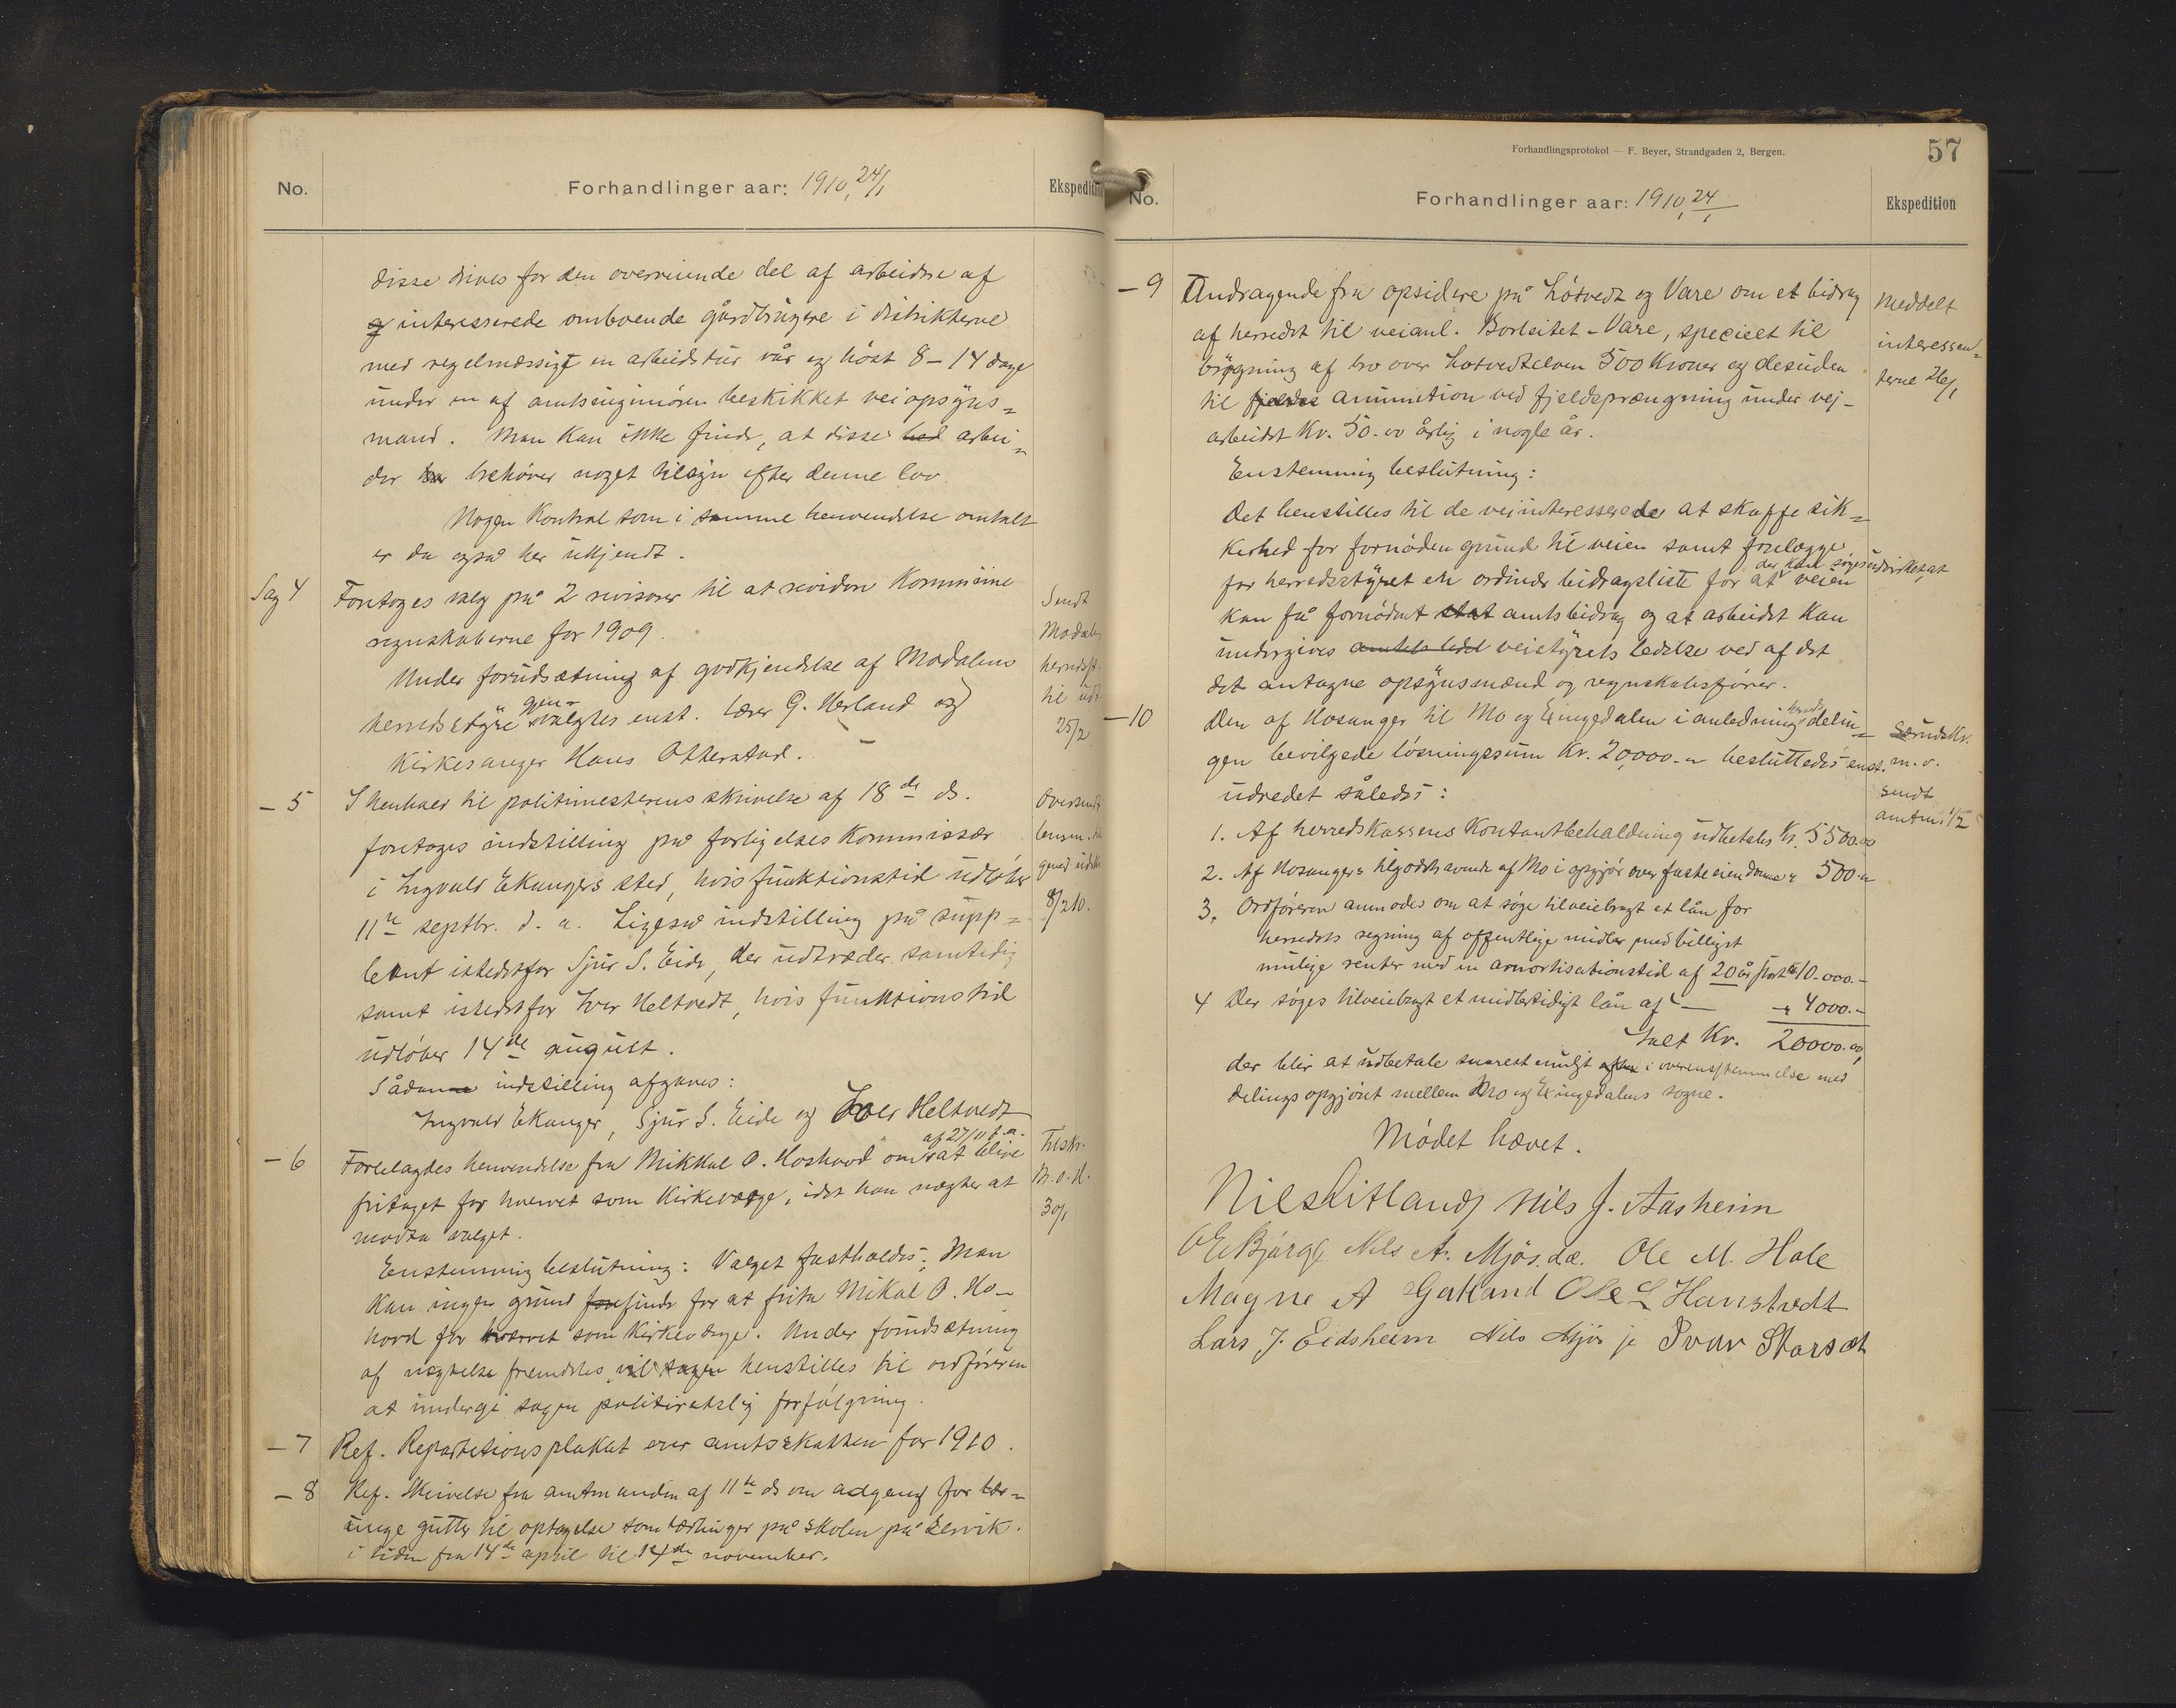 No.
Forhandlinger aar: 1910, 24/1
Ekspedition
disse drives for den overveiende del af arbeidere af
og interesserede omboende gårdbrugere i distrikterne
med regelmæssigt en arbeidstur vår og høst 8 - 14 dage
under en af amtsingeniøren beskikket veiopsyns=
mand. Man kan ikke finde, at disse arbei=
der behøver noget tilsyn efter denne lov.
Nogen kontrol som i samme henvendelse omtalt
er da også her ukjendt.
Sag 4
Foretoges valg på 2 revisorer til at revidere kommune
regnskaberne for 1909.
Under forudsætning af godkjendelse af Modalens
herredsstyre gen-valgtes enst. lærer G. Herland og
Kirkesanger Hans Otterstad.
Sendt
Modalen
herredsst.
til udt.
25/2
- 5
I henhold til politimesterens skrivelse af 18de ds.
foretoges indstilling på forligelseskommissær
i Ingvald Ekangers sted, hvis funktionstid udløber
11te septbr. d. a. Ligeså indstilling på supp=
leant istedetfor Sjur S. Eide, der udtræder samtidig
samt istedetfor Iver Heltvedt, hvis funktionstid
udløber 14de august.
Sådan indstilling afgaves:
Ingvald Ekanger, Sjur S. Eide og Iver Heltvedt
Oversendt
lensm.
8/2 10.
- 6
Forelagdes henvendelse fra Mikkal O. Hoshovd af 27/11 f. a. om at blive
fritaget for hvervet som Kirkeværge, idet han nægter at
modta valget.
Enstemmig beslutning: Valget fastholdes; Man
kan ingen grund finde for at frita Mikal O. Ho-
hovd for hvervet som Kirkeværge. Under forudsætning
af nægtelse fremdeles, vil sagen henstilles til ordføreren
at undergi sagen politiretslig forfølgning.
Tilskr.
M. O. H.
30/1
- 7
Ref. Repartitionsplakat over amtsskatten for 1910.
- 8
Ref. Skrivelse fra amtmanden af 11te ds om adgang for
unge gutter til optagelse som lærlinger på skolen på
i tiden fra 14de april til 14de november.
Forhandlingsprotokol — F. Beyer, Strandgaden 2, Bergen.
57
No.
Forhandlinger aar: 1910, 24/1
Ekspedition
- 9
Andragende fra opsidere på Løtvedt og Vare om et bidrag
af herredet til veianl. Borleitet - Vare, specielt til
bygning af bro over Løtvedtelven 500 Kroner og desuden
til ammunition ved fjeldsprængning under vej-
arbeidet Kr. 50.00 årlig i nogle år.
Enstemmig beslutning:
Det henstilles til de veiinteresserede at skaffe sik=
kerhed for fornøden grund til veien samt forelægge
for herredsstyret en ordinær bidragsliste for at der kan søges udvirket, at veien
kan få fornødent amtsbidrag og at arbeidet kan
undergives veistyrets ledelse ved af det
det antagne opsynsmænd og regnskabsfører.
Meddelt
interessen=
terne 26/1
- 10
Den af Hosanger til Mo og Exingedalen i anledning herreds delin=
gen bevilgede løsningssum Kr. 20,000.- besluttedes enst.
udredet således:
1. Af herredskassens Kontantbeholdning udbetales Kr. 5500.00
2. Af Hosangers tilgodehavende af Mo i opgjør over faste eiendomme " 500.-
3. Ordføreren anmodes om at søge tilveiebragt et lån for
herredets regning af offentlige midler med billigst
mulige renter med en amortisationstid af 20 år stort Kr 10.000.-
4 Der søges tilveiebragt et midlertidigt lån af — " 4000.-
Ialt Kr. 20000.00,
der blir at udbetale snarest muligt i overensstemmelse med
delingsopgjøret mellem Mo og Exingedalens sogne.
Særudskr.
m. v.
sendt
amtm. 1/2
Mødet hævet.
Nils Litland Nils J. Aasheim
O Ekbjørg Nils A. Mjøs.dæ. Ole M. Hole
Magne A Gatland Ole L Hanstvedt
Lars J. Eidsheim Nils Mjøs je Ivar Storset